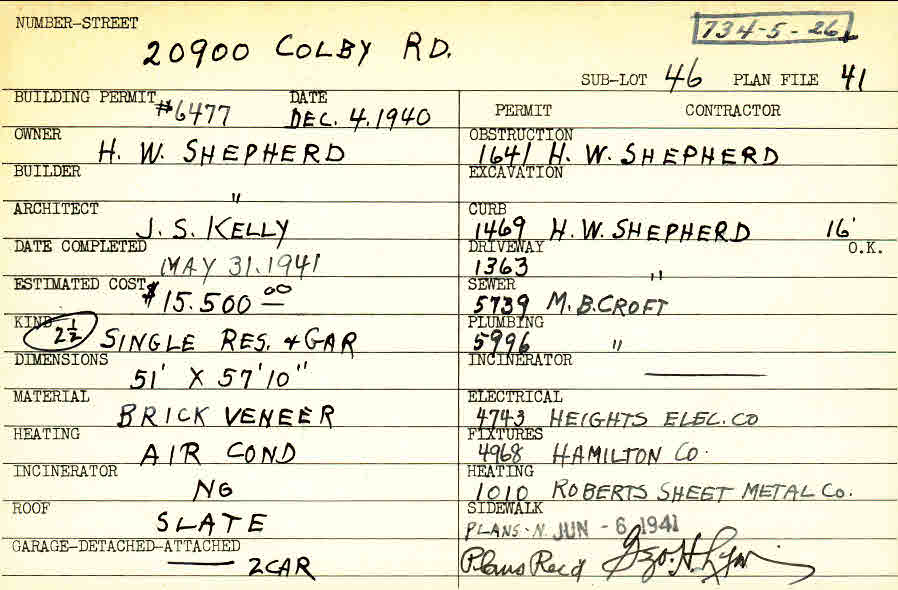 NUMBER-STREET
734-5-26
20900 COLBY RD.
SUB-LOT 46 PLAN FILE 41
BUILDING PERMIT #6477 DATE DEC. 4. 1940
OWNER H. W. SHEPHERD
BUILDER "
ARCHITECT J. S. KELLY
DATE COMPLETED MAY 31. 1941
ESTIMATED COST $15.500 00
KIND 2 1/2 SINGLE RES. + GAR
DIMENSIONS 51' X 57'10"
MATERIAL BRICK VENEER
HEATING AIR COND
INCINERATOR NO
ROOF SLATE
GARAGE-DETACHED-ATTACHED 2 CAR
PERMIT CONTRACTOR
OBSTRUCTION 1641 H. W. SHEPHERD
EXCAVATION
CURB 1469 H. W. SHEPHERD 16'
DRIVEWAY 1363 " O.K.
SEWER 5739 M. B. CROFT
PLUMBING 5996 "
INCINERATOR
ELECTRICAL 4743 HEIGHTS ELEC. CO
FIXTURES 4968 HAMILTON CO.
HEATING 1010 ROBERTS SHEET METAL Co.
SIDEWALK
PLANS-N. JUN - 6 1941
Plans Rec'd Geo. H. Lynn